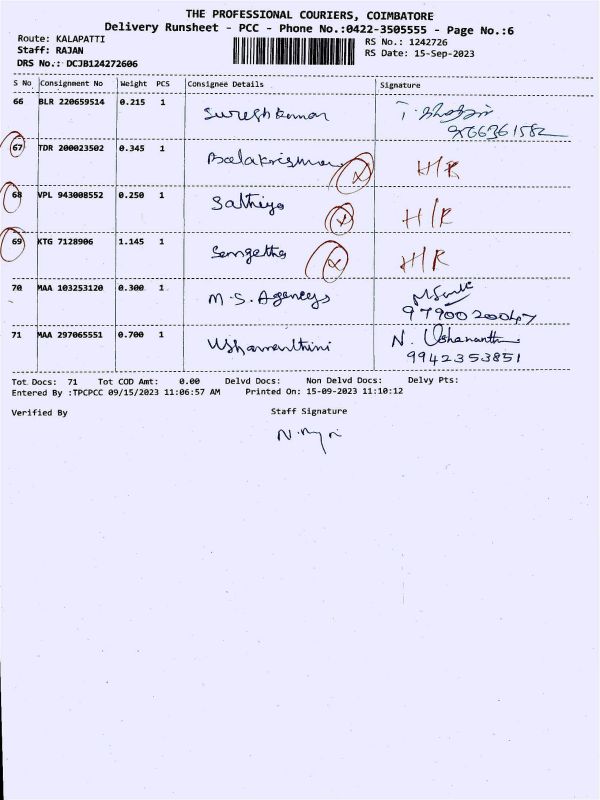 THE PROFESSIONAL COURIERS, COIMBATORE
Delivery Runsheet - PCC - Phone No.:0422-3505555 - Page No.:6
Route: KALAPATTI
RS No.: 1242726
Staff: RAJAN
RS Date: 15-Sep-2023
DRS No.: DCJB124272606
S No Consignment No Weight PCS Consignee Details Signature
66 BLR 220659514 0.215 1 Sureshkumar
67 TDR 200023502 0.345 1 Balakrishnan H/R
68 VPL 943008552 0.250 1 Sathiya H/R
69 KTG 7128906 1.145 1 Sangetha H/R
70 MAA 103253120 0.300 1 M.S. Agencys
9790020047
71 MAA 297065551 0.700 1 Ushananthini N. Ushananthi
9942353851
Tot Docs: 71 Tot COD Amt: 0.00 Delvd Docs: Non Delvd Docs: Delvy Pts:
Entered By :TPCPCC 09/15/2023 11:06:57 AM Printed On: 15-09-2023 11:10:12
Verified By Staff Signature